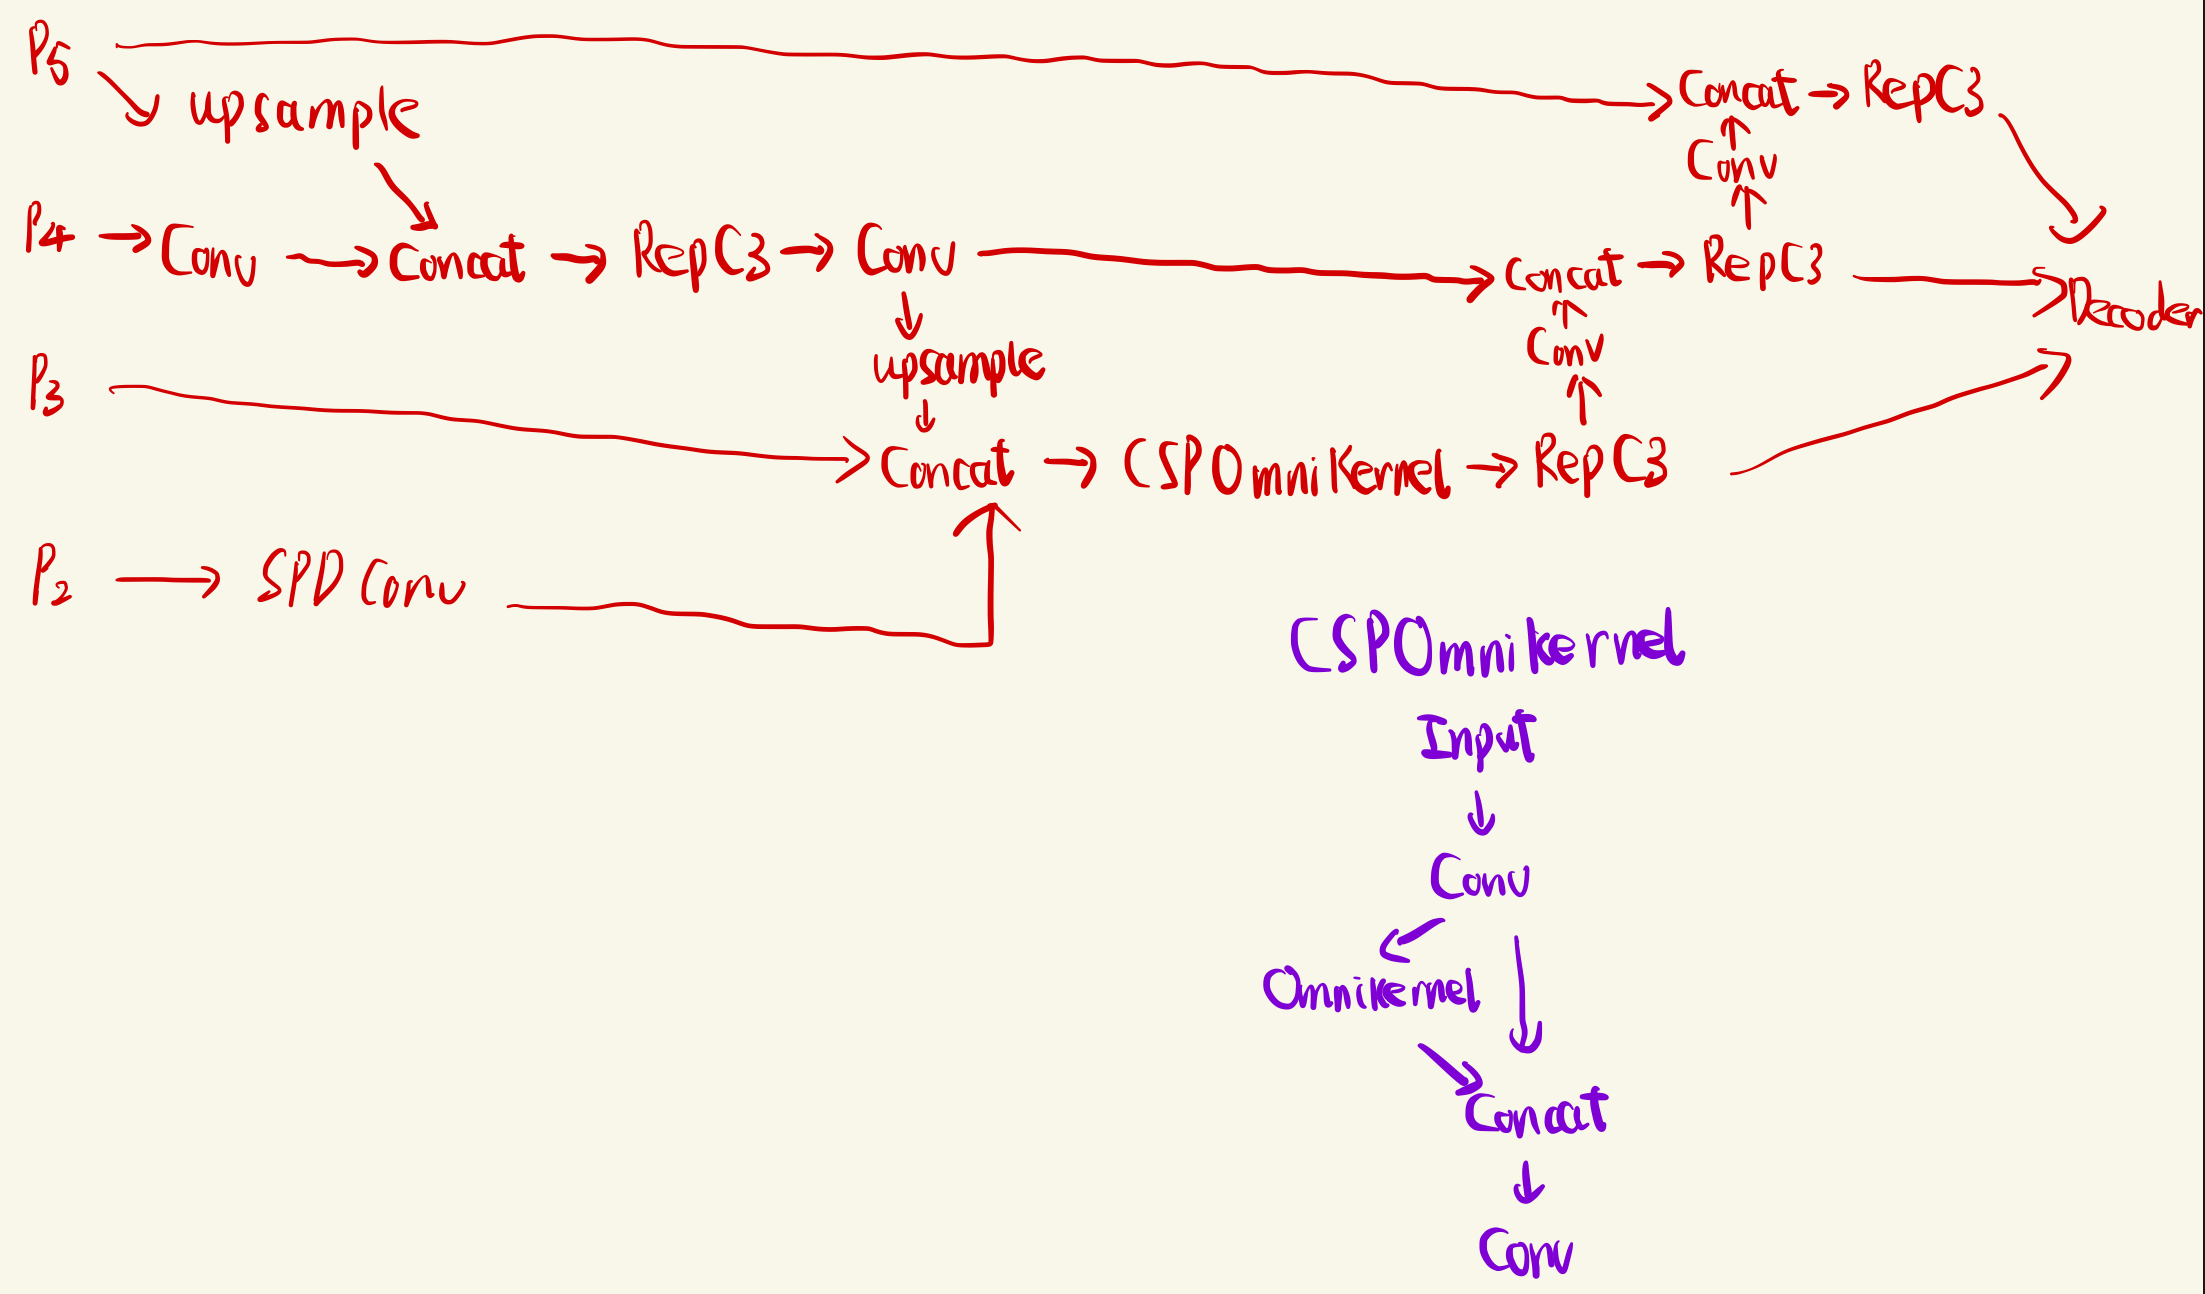 P5
Concat → RepC3
upsample
Conv
P4 → Conv → Concat → RepC3 → Conv → Concat → RepC3 → Decoder
upsample
Conv
P3
Concat → CSPOmniKernel → RepC3
P2 → SPDConv
CSPOmnikernel
Input
Conv
Omnikernel
Concat
Conv